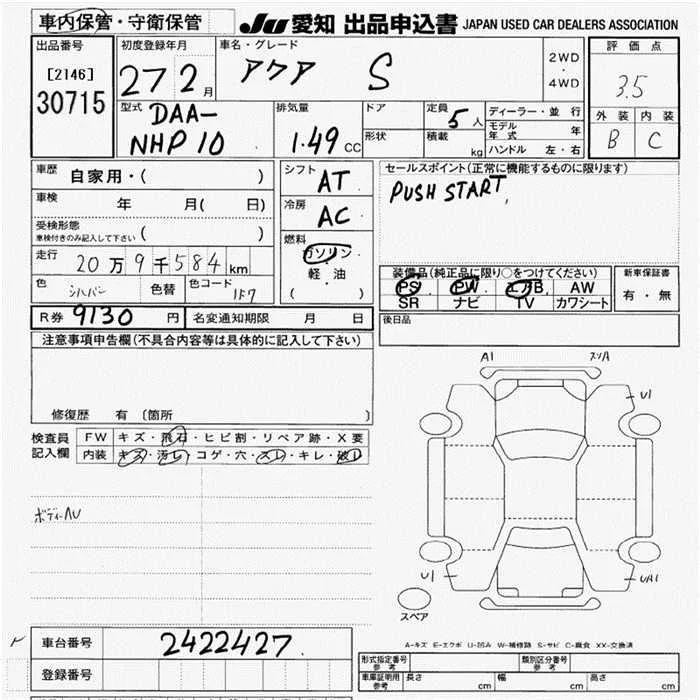 車内保管・守衛保管
JU 愛知 出品申込書 JAPAN USED CAR DEALERS ASSOCIATION
出品番号
[2146]
30715
初度登録年月
27 2 月
車名・グレード
アクア S
2WD
・
4WD
評価点
3.5
外装 内装
B C
型式
DAA-
NHP10
排気量
1.49 CC
ドア
形状
定員
5 人
積載
kg
ディーラー・並行
モデル年式 年
ハンドル 左・右
車歴
自家用・( )
車検
年 月( 日)
受検形態
車検付きのみ記入して下さい ( )
走行
20万9千584km
色
シルバー
色替
色コード
1F7
シフト
AT
冷房
AC
燃料
ガソリン
軽・油
( )
セールスポイント(正常に機能するものに限ります)
PUSH START,
装備品(純正品に限り○をつけてください)
PS PW エアB AW
SR ナビ TV カワシート
新車保証書
有・無
R券 9130 円 名変通知期限 月 日
後日品
注意事項申告欄(不具合内容等は具体的に記入して下さい)
修復歴 有 〔箇所 〕
検査員
記入欄
FW キズ・飛石・ヒビ割・リペア跡・X要
内装 キズ・汚レ・コゲ・穴・スレ・キレ・破レ
ボディーAU
A1
スリA
U1
U1
UA1
スペア
A-キズ E-エクボ U-凹み W-補修跡 S-サビ C-腐食 XX-交換済
車台番号 2422427
登録番号
形式指定番号
参考
類別区分番号
参考
車庫証明用
参考
長さ cm 幅 cm 高さ cm